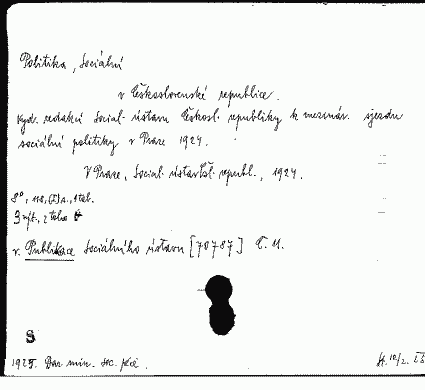 Politika, Sociální
v Československé republice.
Vyd. redakcí Social. ústavu Českosl. republiky k mezinár. sjezdu
sociální politiky v Praze 1924.
V Praze, Social. ústav Čsl. republ., 1924.
8°, 118, (2) s., 1 tab.
3 výt., z toho
v. Publikace Sociálního ústavu [70787] Č. 11.
S
1925. Dar min. soc. péče.